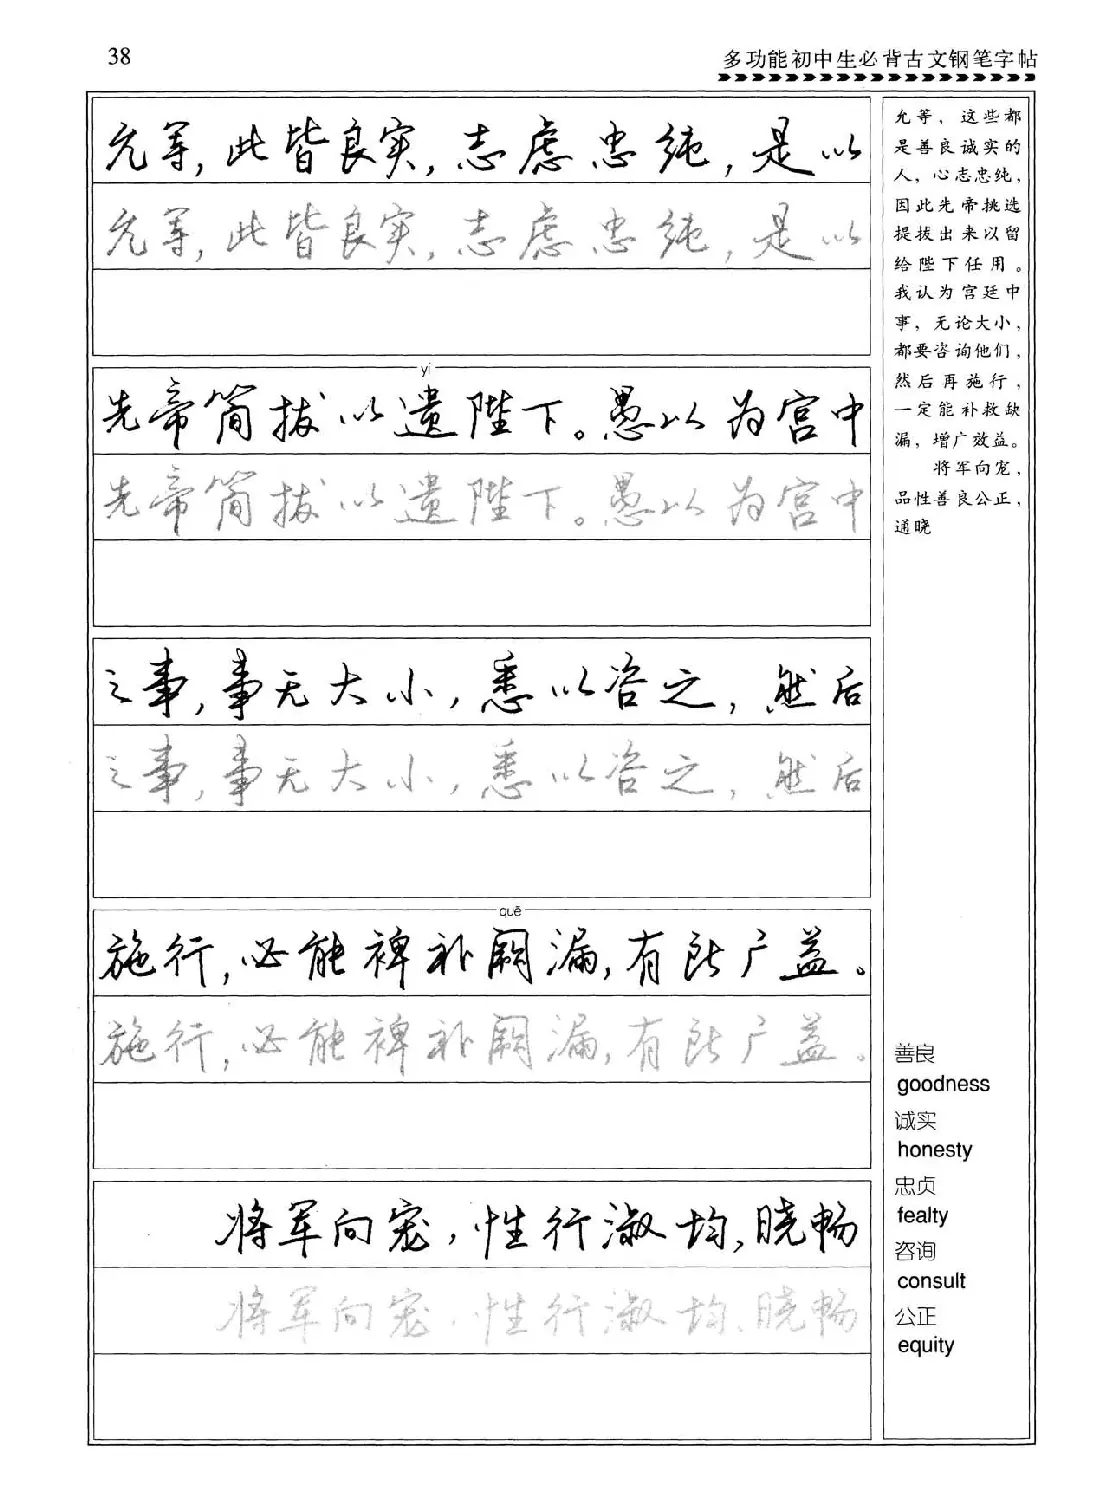 38
多功能初中生必背古文钢笔字帖
允等,此皆良实,志虑忠纯,是以
允等,此皆良实,志虑忠纯,是以
yí
先帝简拔以遗陛下。愚以为宫中
先帝简拔以遗陛下。愚以为宫中
之事,事无大小,悉以咨之,然后
之事,事无大小,悉以咨之,然后
quē
施行,必能裨补阙漏,有所广益。
施行,必能裨补阙漏,有所广益。
将军向宠,性行淑均,晓畅
将军向宠,性行淑均,晓畅
允等,这些都
是善良诚实的
人,心志忠纯,
因此先帝挑选
提拔出来以留
给陛下任用。
我认为宫廷中
事,无论大小,
都要咨询他们,
然后再施行,
一定能补救缺
漏,增广效益。
将军向宠,
品性善良公正,
通晓
善良
goodness
诚实
honesty
忠贞
fealty
咨询
consult
公正
equity